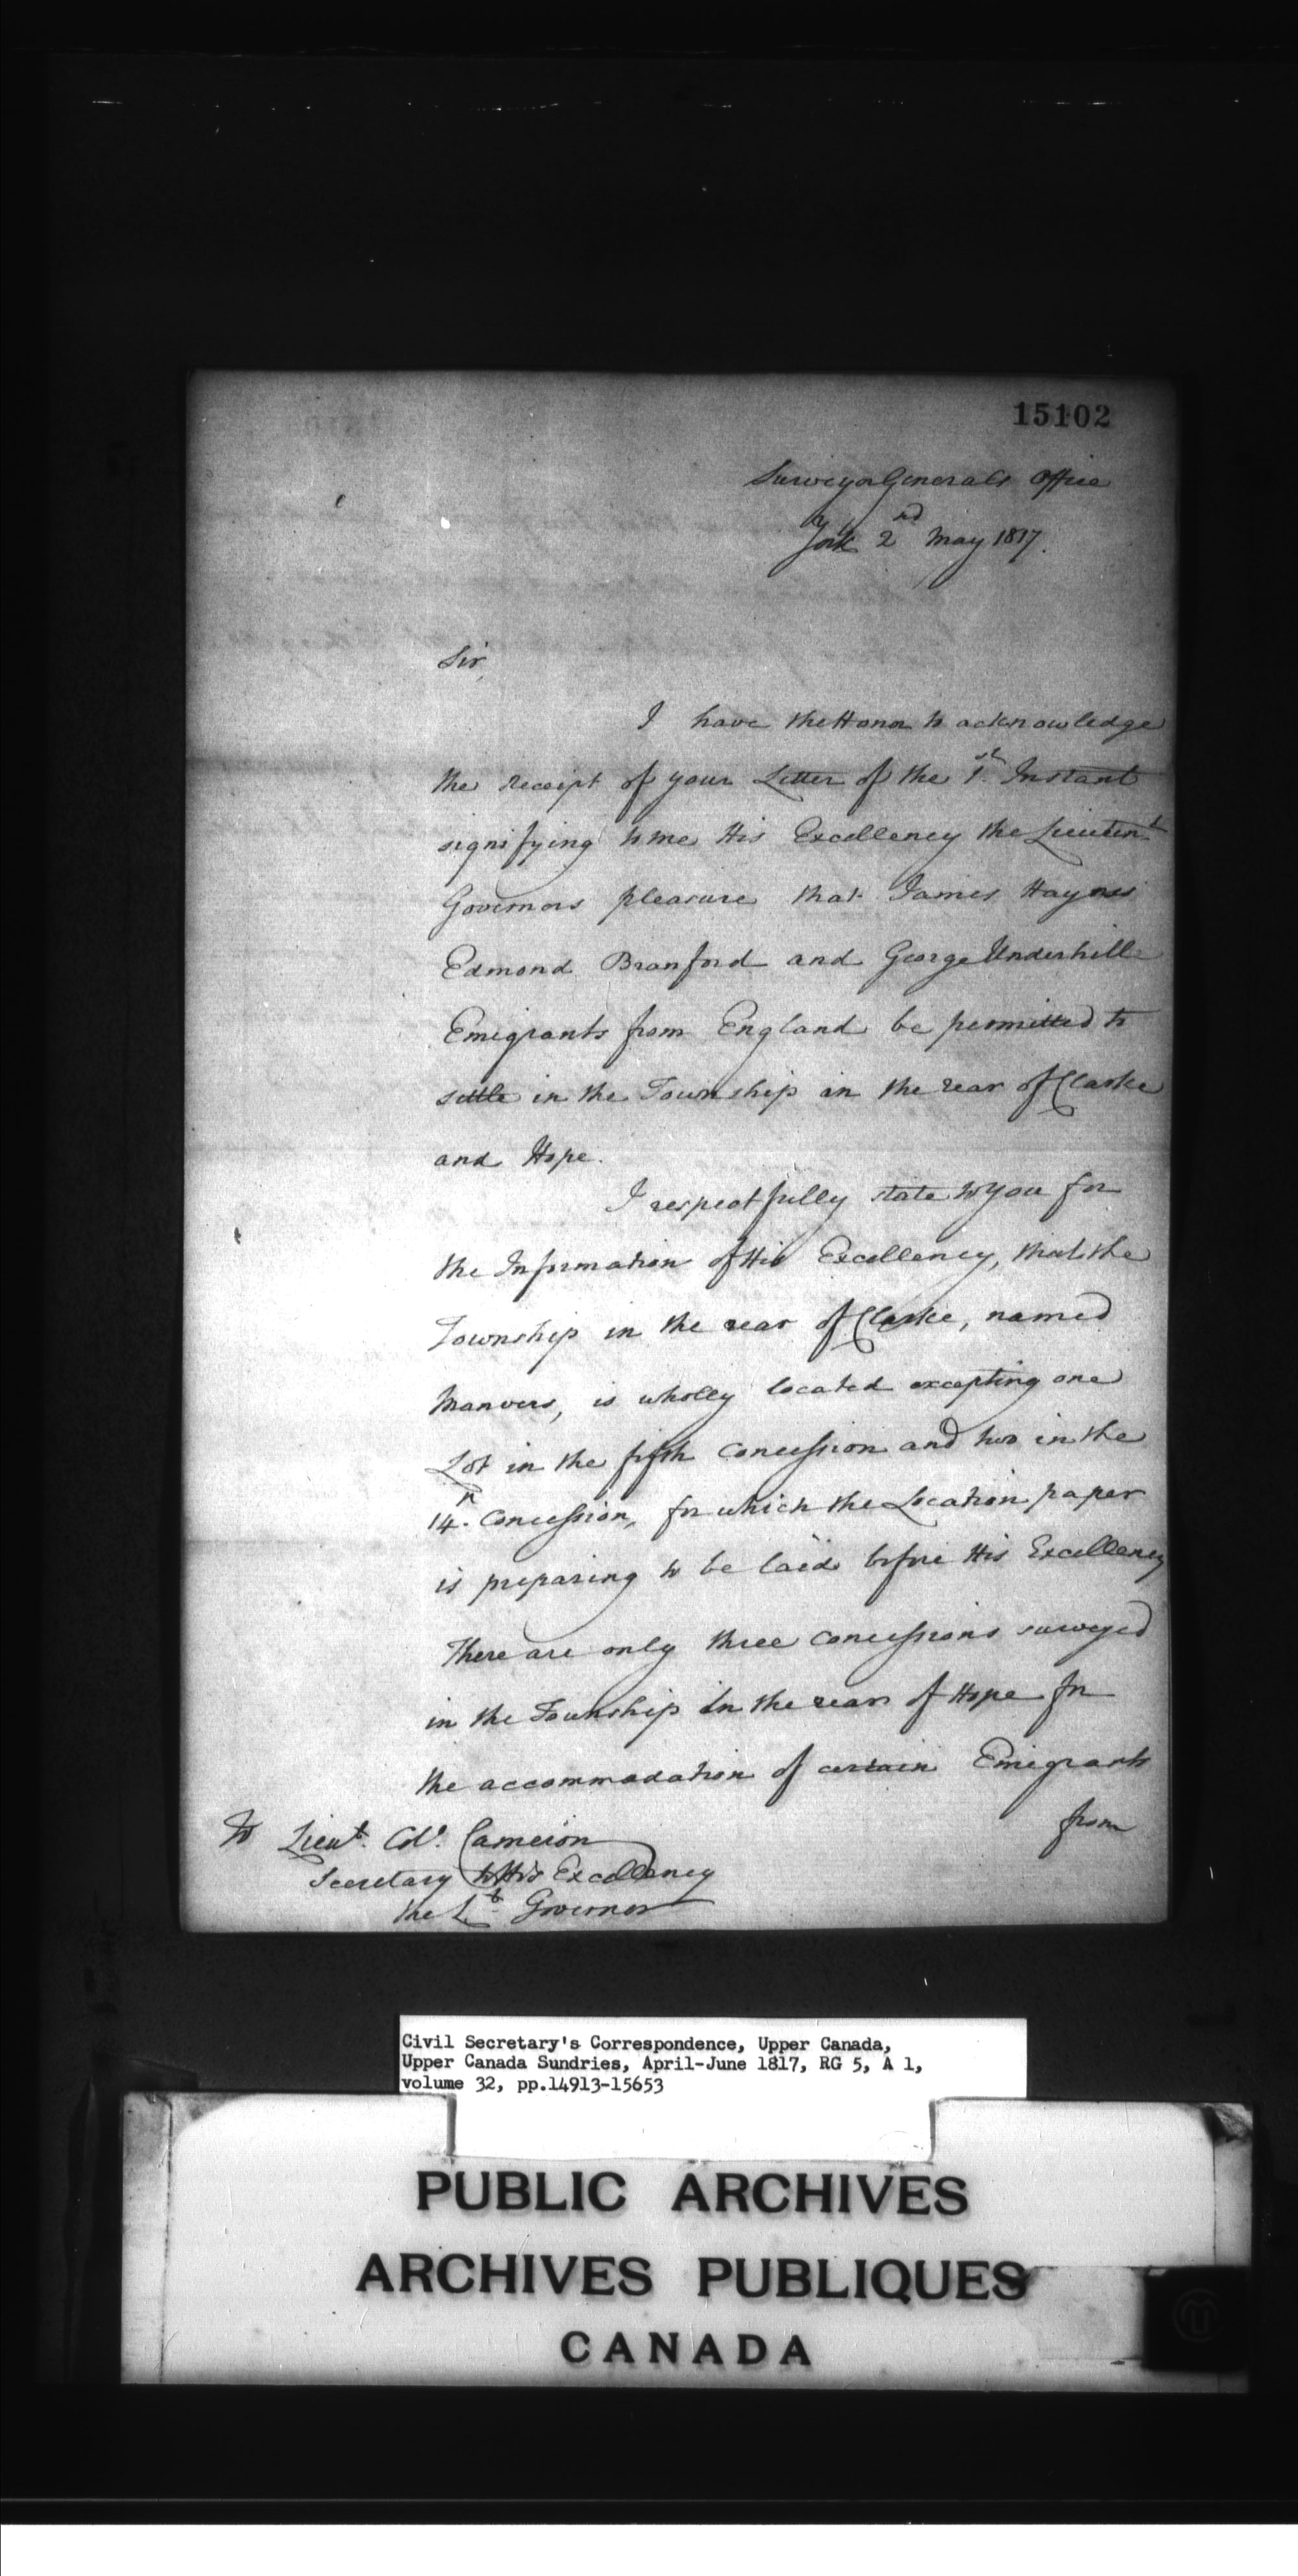 15102
Surveyor Generals Office
York 2nd May 1817.
Sir,
I have the Honor to acknowledge
the receipt of your Letter of the 1st. Instant
signifying to me His Excellency the Lieutent
Governors pleasure that James Haynes
Edmond Branford and George Underhill
Emigrants from England be permitted to
settle in the Township in the rear of Clarke
and Hope.
I respectfully state to you for
the Information of His Excellency, that the
Township in the rear of Clarke, named
Manvers, is wholly located excepting one
Lot in the fifth Concession and two in the
14th. Concession, for which the Location paper
is preparing to be laid before His Excellency
There are only three Concessions surveyed
in the Township in the rear of Hope for
the accommodation of certain Emigrants
from
To Lieut. Col. Cameron
Secretary to His Excellency
the Lt. Governor
Civil Secretary's Correspondence, Upper Canada,
Upper Canada Sundries, April-June 1817, RG 5, A 1,
volume 32, pp.14913-15653
PUBLIC ARCHIVES
ARCHIVES PUBLIQUES
CANADA